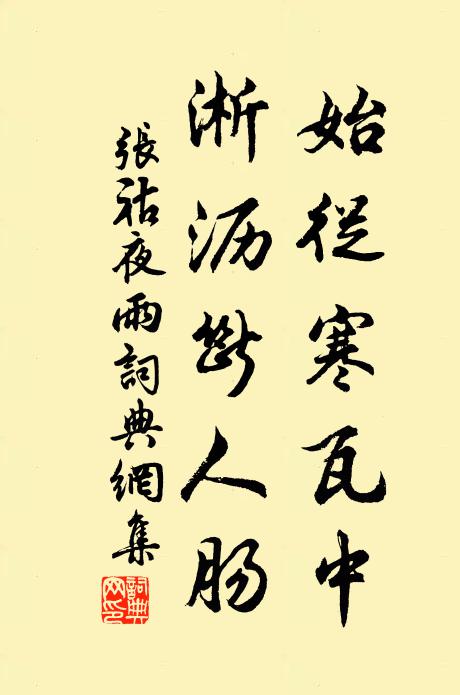 始從寒瓦中
淅沥斷人肠
張祜夜雨詞典網集
詞典网印